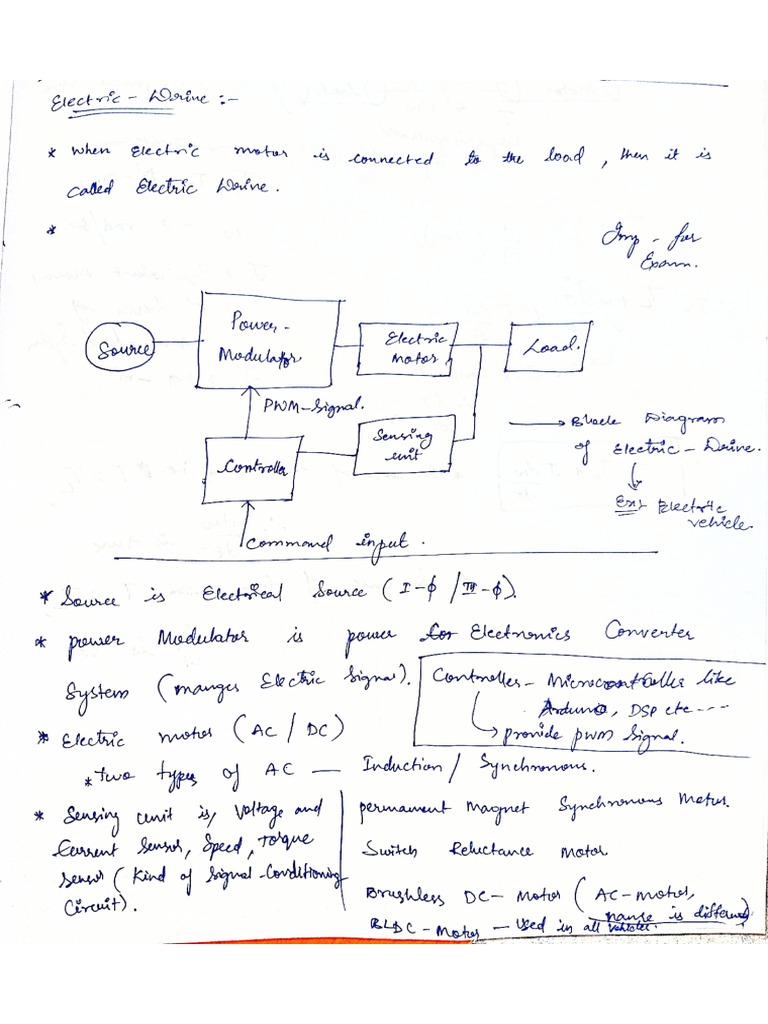 Electric-Drive :-
* When Electric motor is connected to the load, then it is
called Electric Drive.
*
Imp - for
Exam.
Source
Power-
Modulator
Electric
motor
Load.
PWM-Signal.
Controller
Sensing
unit
Command input.
Block Diagram
of Electric-Drive.
Ex:- Electric
vehicle.
* Source is Electrical Source (I-ϕ / III-ϕ).
* power Modulator is power Electronics Converter
System (manges Electric Signal).
Controller - Microcontroller like
Arduno, DSP etc ----
provide pwm Signal.
* Electric motor (AC / DC)
* Two types of AC — Induction / Synchronous.
* Sensing unit is, Voltage and
Current Sensor, Speed, Torque
Sensor (Kind of Signal-Conditioning
Circuit).
permanant Magnet Synchronous Motor.
Switch Reluctance Motor
Brushless DC- Motor (AC-motor,
name is different)
BLDC-Motor — Used in all vehicles.